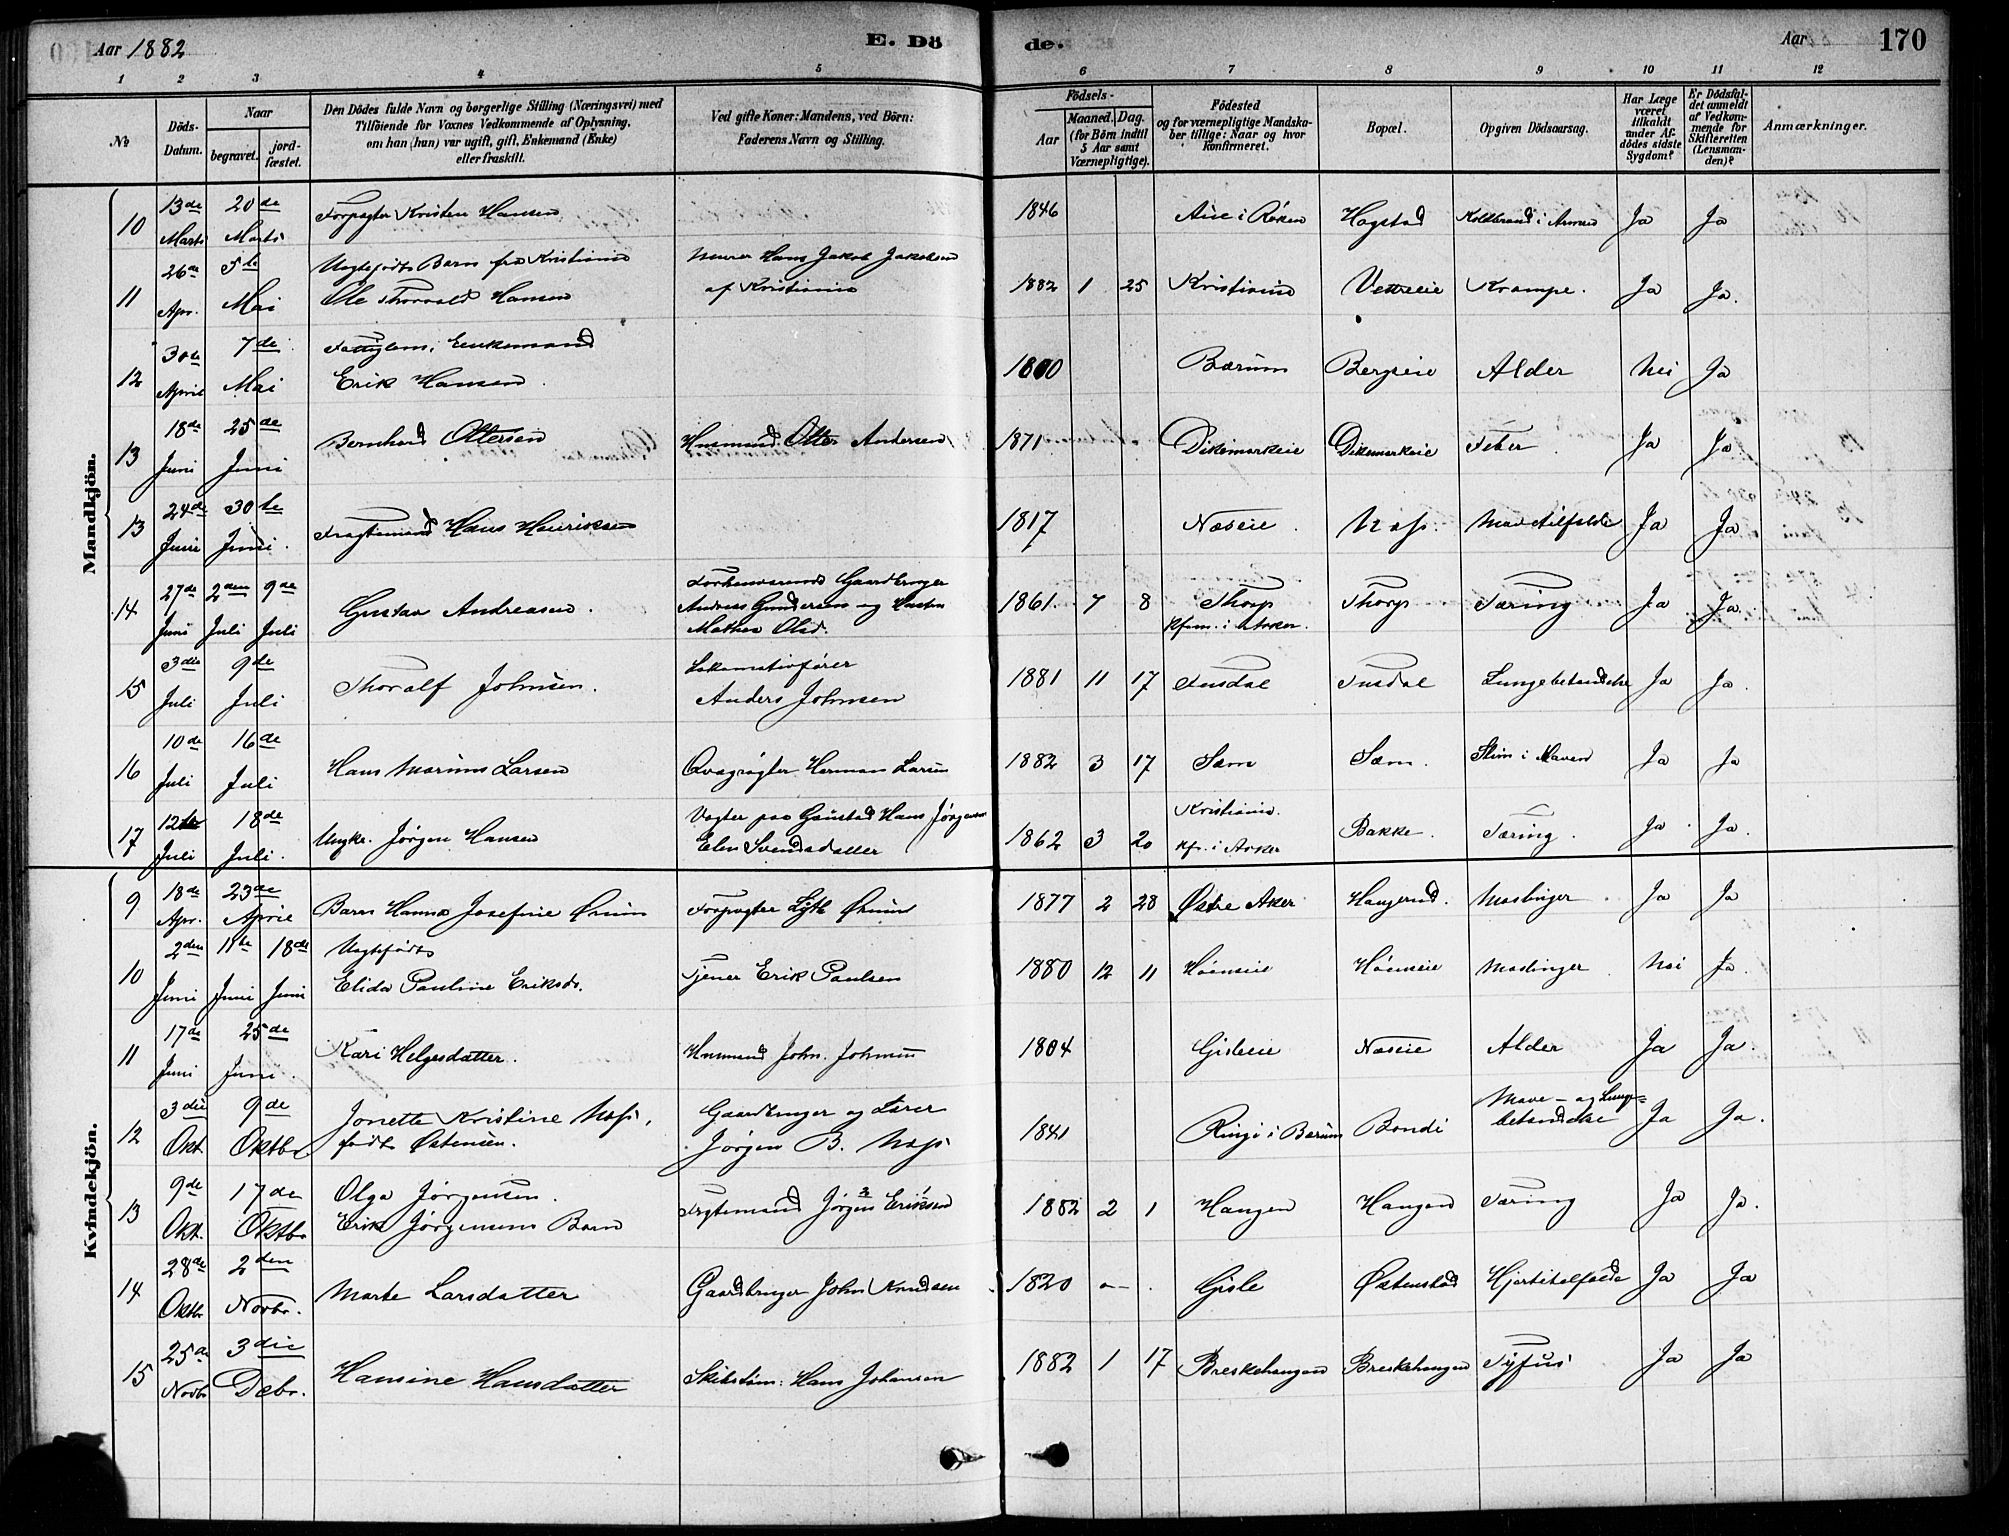 Aar 1882
E. Dö
de.
Aar
170
1 2 3 4 5 6 7 8 9 10 11 12
№
Döds-Datum.
Naar
begravet.
jord-fæstet.
Den Dödes fulde Navn og borgerlige Stilling (Næringsvei) med
Tilföiende for Voxnes Vedkommende af Oplysning,
om han (hun) var ugift, gift, Enkemand (Enke)
eller fraskilt.
Ved gifte Koner: Mandens, ved Börn:
Faderens Navn og Stilling.
Födsels-
Aar
Maaned. Dag.
(for Börn indtil
5 Aar samt
Værnepligtige).
Födested
og for værnepligtige Mandska-
ber tillige: Naar og hvor
konfirmeret.
Bopæl.
Opgiven Dödsaarsag.
Har Læge
været
tilkaldt
under Af-
dödes sidste
Sygdom?
Er Dödsfal-
det anmeldt
af Vedkom-
mende for
Skifteretten
(Lensman-
den)?
Anmærkninger.
Mandkjön.
10 13de Marts 20de Marts Forpagter Kristen Hansen 1846 Hogstad Koldbrand i Armen Ja Ja
11 26de Apr. 5te Mai Uægtefødt Barn fra Kristiania Ole Thorvald Hansen Murer Hans Jakob Jakobsen af Kristiania 1882 1 25 Kristiania Krampe. Ja Ja.
12 30te April 7de Mai Fattiglem, Enkemand Erik Hansen. 1800 Bærum Bergseie Alder Nei Ja
13 18de Juni 25de Juni Bernhard Ottersen Husmand Otter Andersen 1871 Dikemarkeie Dikemarkeie Feber Ja Ja
13 24de Juni 30te Juni. Fragtemand Hans Henriksen 1817 Næseie Næss. Ja Ja
14 27de Juni 2den Juli 9de Juli Gustav Andreasen. Forhenværende Gaardbruger Andreas Gundersen og Hustru Mathea Olsd. 1861 7 8 Thorp Kfem. i Asker. Thorp Tæring Ja Ja
15 3die Juli 9de Juli Thoralf Johnsen. Lokomotivfører Anders Johnsen 1881 11 17 Tusdal Tusdal Lungebetændelse Ja Ja.
16 10de Juli 16de Juli Hans Marius Larsen Qvægrøgter Herman Larsen 1882 3 17 Sem Sem. Slim i Maven Ja Ja
17 12te Juli 18de Juli. Ungkr. Jørgen Hansen Vogter paa Gaustad Hans Jørgensen Elen Svendsdatter 1862 3 20 Kristiania. Kf. i Asker Bakke. Tæring. Ja Ja.
Kvindekjön.
9 18de Apr. 23de April Barn Hanna Josefine Forpagter 1877 2 28 Østre Aker Haugerud. Meslinger Ja Ja
10 2den Juni 11te Juni 18de Juni Uægtefødt Elida Pauline Eriksdr. Tjener Erik Paulsen 1880 12 11 Høneseie Høneseie Meslinger Nei Ja.
11 17de Juni 25de Juni. Kari Helgesdatter. Husmand John Johnsen 1804 Gisleeie Næseie Alder Ja Ja.
12 3die Okt. 9de Oktbr. Jonette Kristine Næss, født Østensen. Gaardbruger og Lærer Jørgen B. Næss 1841 Ringi i Bærum Bondi Mave- og Lunge- betændelse Ja Ja.
13 9de Okt. 17de Oktbr Olga Jørgensen. Erik Jørgensens Barn Fragtemand Jørgen Eriksen 1882 2 1 Haugen Haugen Tæring Ja Ja.
14 28de Oktbr 2den Novbr. Marte Larsdatter Gaardbruger John Knudsen 1820 — Gisle Østenstad Hjertetilfælde Ja Ja
15 25de Novbr 3die Debr. Hansine Hansdatter Skibstøm: Hans Johansen 1882 1 17 Breskehaugen Breskehaugen Tyfus Ja Ja